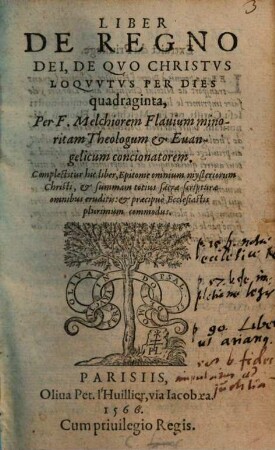 3
LIBER
DE REGNO
DEI, DE QVO CHRISTVS
LOQVVTVS PER DIES
quadraginta,
Per F. Melchiorem Flauium mino-
ritam Theologum & Euan-
gelicum concionatorem.
Complectitur hic liber, Epitome omnium mysteriorum
Christi, & summam totius sacræ scripturæ
omnibus eruditis: & præcipuè Ecclesiastis
plurimum commodus.
p. 90. Liber
PARISIIS,
Oliua Pet. l'Huillier, via Iacobæa.
1566.
Cum priuilegio Regis.